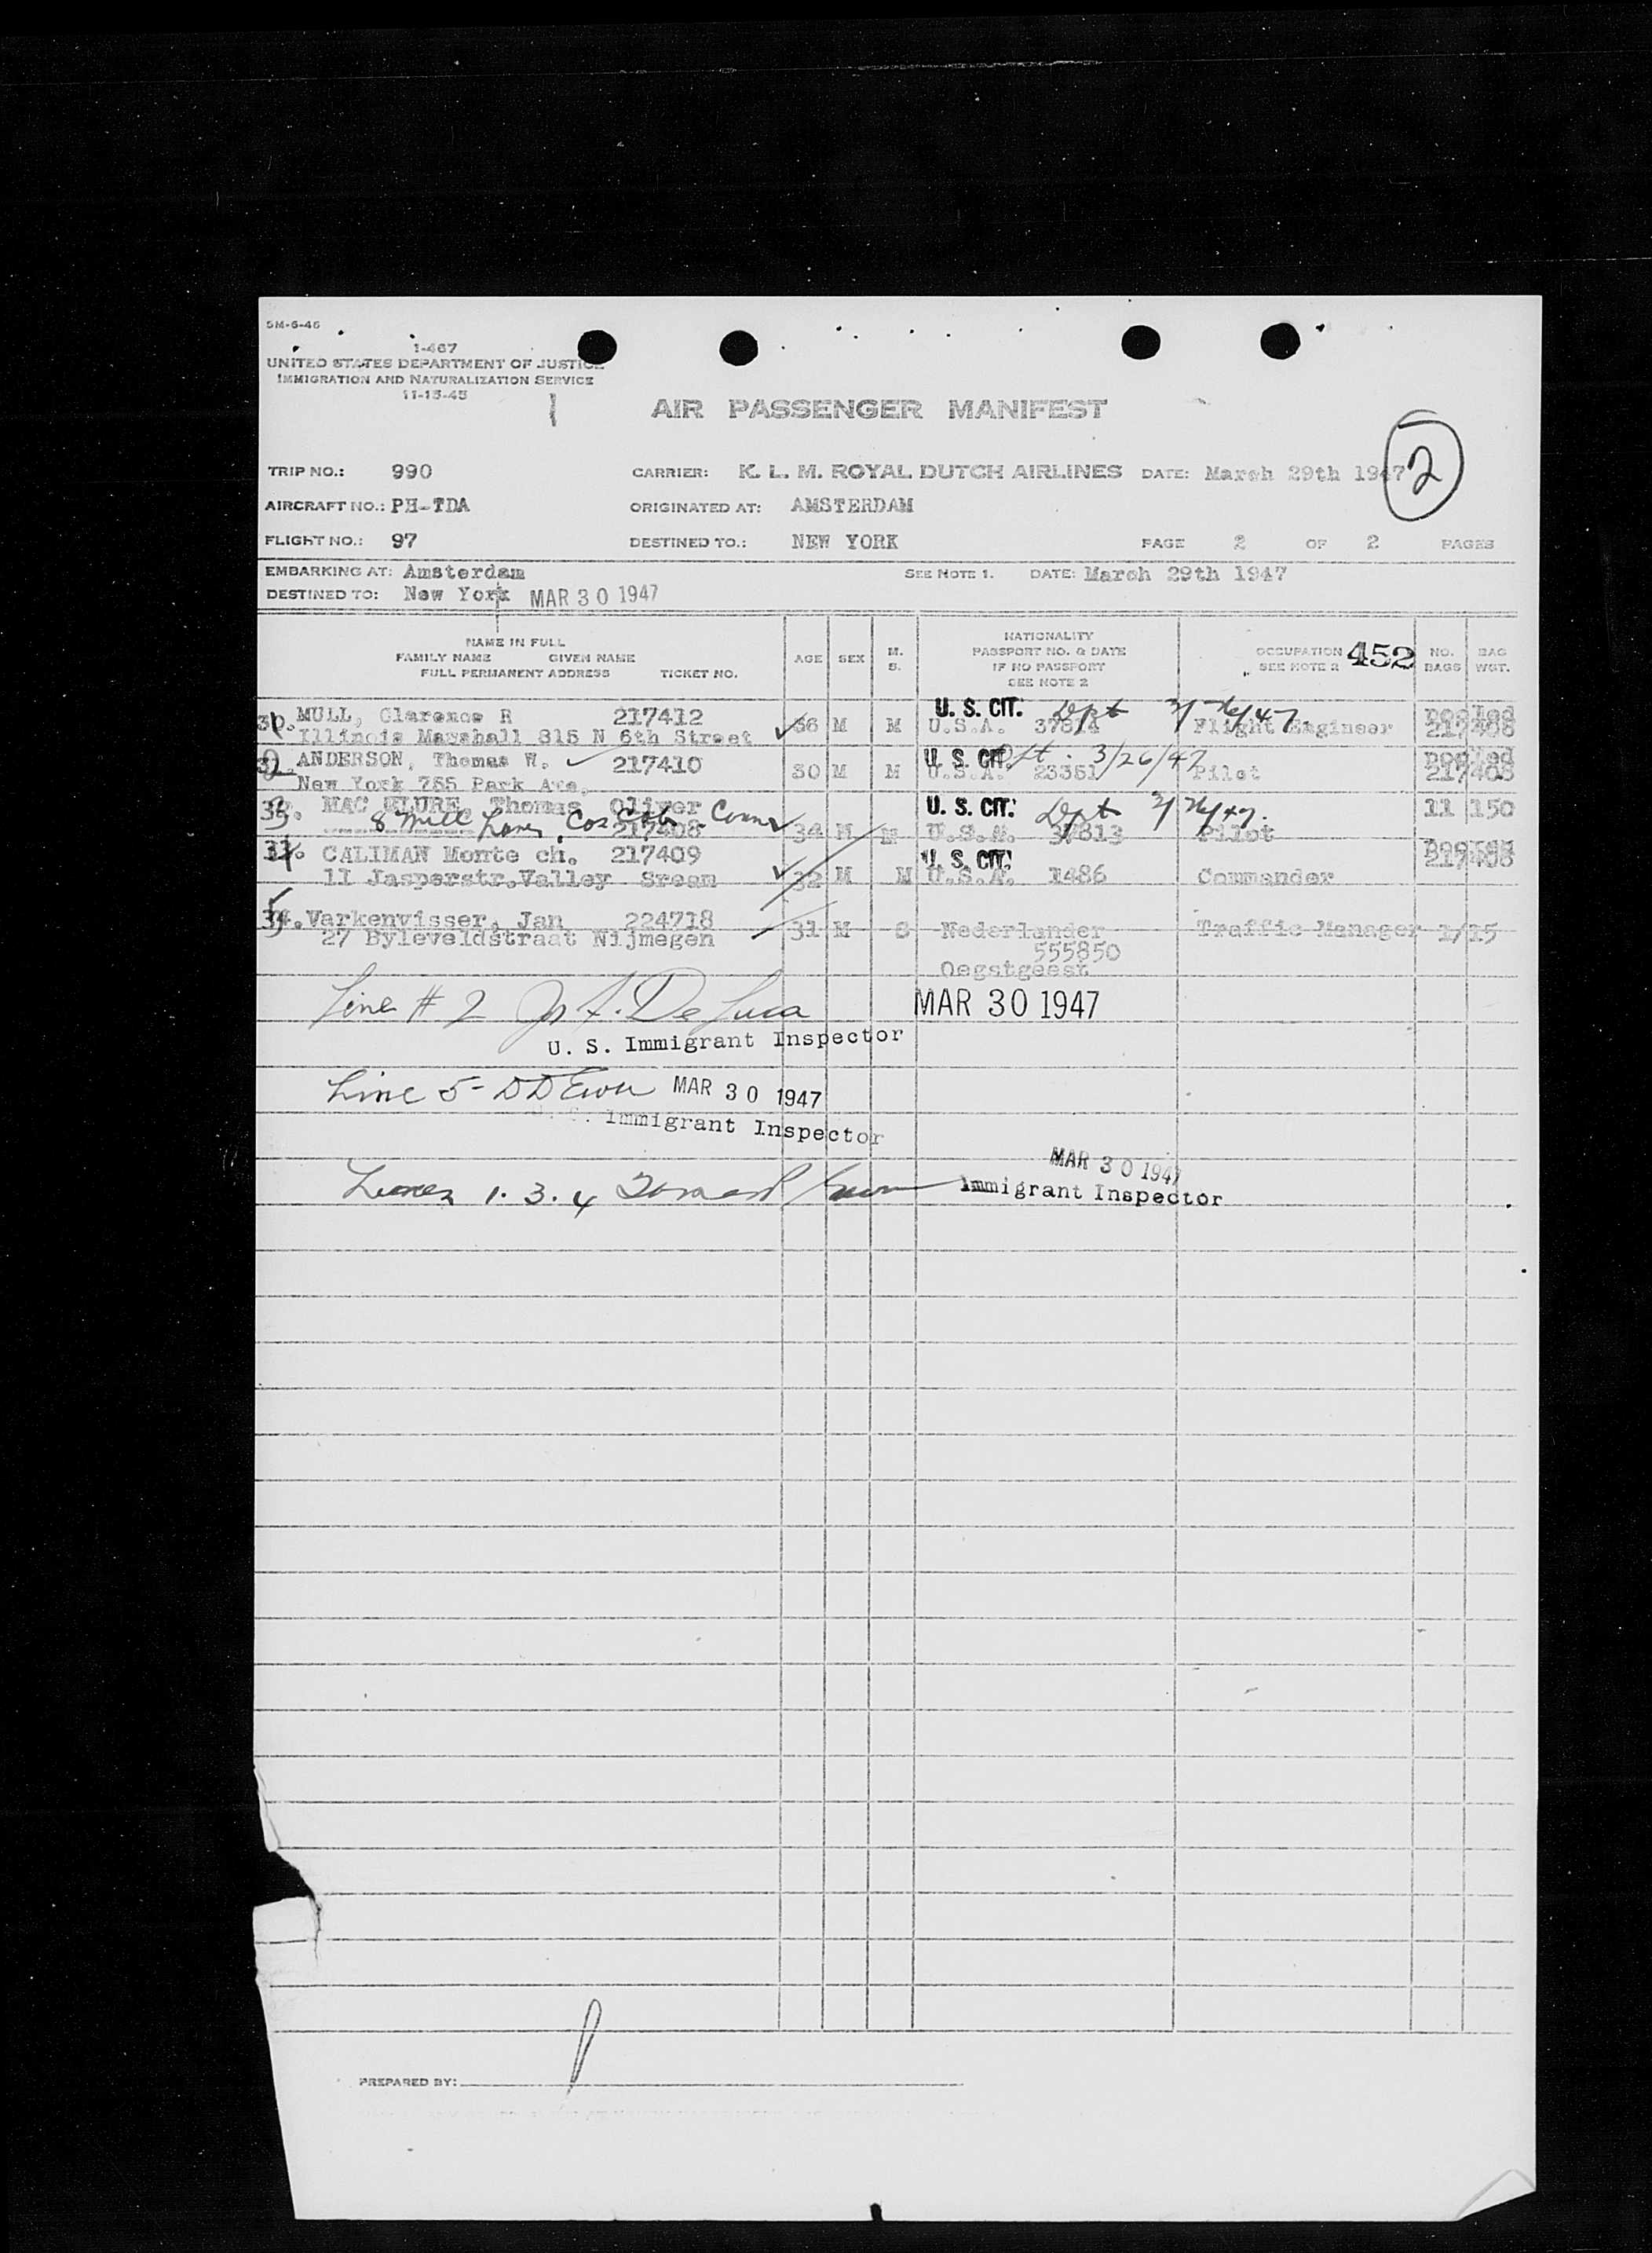 5M-6-46
I-467
UNITED STATES DEPARTMENT OF JUSTICE
IMMIGRATION AND NATURALIZATION SERVICE
11-15-45
AIR PASSENGER MANIFEST
2
TRIP NO.: 990 CARRIER: K. L. M. ROYAL DUTCH AIRLINES DATE: March 29th 1947
AIRCRAFT NO.: PH-TDA ORIGINATED AT: AMSTERDAM
FLIGHT NO.: 97 DESTINED TO.: NEW YORK PAGE 2 OF 2 PAGES
EMBARKING AT: Amsterdam SEE NOTE 1. DATE: March 29th 1947
DESTINED TO: New York MAR 30 1947
NAME IN FULL
FAMILY NAME GIVEN NAME
FULL PERMANENT ADDRESS TICKET NO.
AGE SEX M. S.
NATIONALITY
PASSPORT NO. & DATE
IF NO PASSPORT
SEE NOTE 2
OCCUPATION 452
SEE NOTE 2
NO. BAGS
BAG WGT.
MULL, Clarence R 217412 U. S. CIT. Dpt pooled
Illinois Marshall 815 N 6th Street 36 M M U.S.A. 37814 Flight Engineer 217408
ANDERSON, Thomas W. 217410 U. S. CIT. Dpt. 3/26/47 pooled
New York 755 Park Ave. 30 M M U.S.A. 23351 Pilot 217408
MAC CLURE Thomas Oliver U. S. CIT. Dpt 3/26/47. 11 150
8 Mill Lane, Cos Cob - Conn 217408 34 M M U.S.A. 37813 Pilot
CALIMAN Monte ch. 217409 U. S. CIT. pooled 217408
11 Jasperstr.Valley Sream 32 M M U.S.A. 1486 Commander
Varkenvisser, Jan 224718
27 Byleveldstraat Nijmegen 31 M S Nederlander Traffic Manager 1/15
555850
Oegstgeest
Line # 2 De Luca MAR 30 1947
U. S. Immigrant Inspector
Line 5 - MAR 30 1947
Immigrant Inspector
MAR 30 1947
Lines 1. 3. 4 Immigrant Inspector
PREPARED BY: